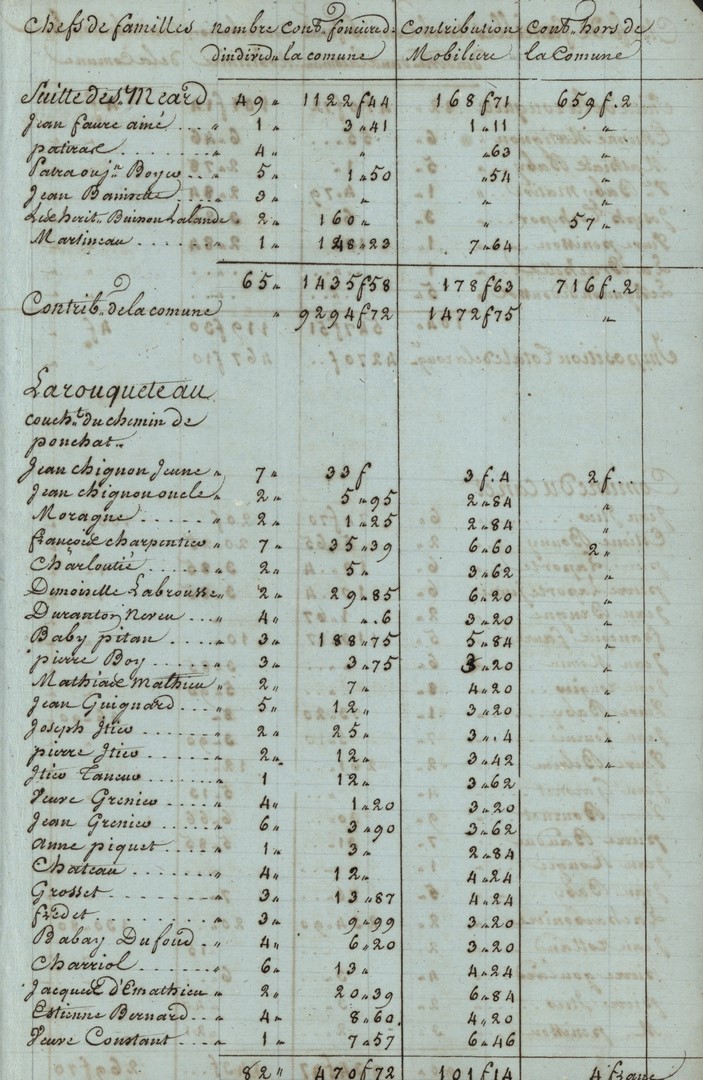 Chefs de familles nombre cont.on fonciere de Contribution Cont.on hors de
d'individ.s la comune Mobiliere la Comune
Suitte de s.t Meard 49 " 1122 f 44 168 f 71 659 f. 2
Jean faure ainé 1 " 3 " 41 1 " 11 "
patirat 4 " " " 63 "
Patraou j.n Boyer 5 " 1 " 50 " 54 "
Jean Banisette 3 " " " "
Les herit.s Buisson Lalande 2 " 160 " " 57 "
Martineau 1 " 148 " 23 7 " 64
65 " 1435 f 58 178 f 63 716 f. 2
Contrib.on de la comune " 9294 f 72 1472 f 75 "
Larouqueteau
couch.t du chemin de
ponchat
Jean chignon Jeune " 7 " 33 f 3 f. 4 2 f.
Jean chignon oncle " 2 " 5 " 95 2 " 84 "
Moragne " 2 " 1 " 25 2 " 84 "
françois charpentier " 7 " 35 " 39 6 " 60 2 "
Charloutié " 2 " 5 " 3 " 62 "
Demoiselle Labrousse " 2 " 29 " 85 6 " 20 "
Duranton Neveu " 4 " " . 6 3 " 20 "
Baby pitan " 3 " 188 " 75 5 " 84 "
pierre Boy " 3 " 3 " 75 3 " 20 "
Mathias Mathieu " 2 " 7 " 4 " 20 "
Jean Guignard " 5 " 12 " 3 " 20 "
Joseph Itier " 2 " 25 " 3 " . 4 "
pierre Itier " 2 " 12 " 3 " 42 "
Itier 1 12 " 3 " 62
Veuve Grenier " 4 " 1 " 20 3 " 20
Jean Grenier " 6 " 3 " 90 3 " 62
anne piquet " 1 " 3 " 2 " 84
Chateau " 4 " 12 " 4 " 24
Grosset " 3 " 13 " 87 4 " 24
fredet " 3 " 9 " 99 3 " 20
Babay Dufoud " 4 " 6 " 20 3 " 20
Charriol " 6 " 13 " 4 " 24
Jacques d'Emathieu " 2 " 20 " 39 6 " 84
Estienne Bernard " 4 " 8 " 60 4 " 20
Veuve Constant " 1 " 7 " 57 6 " 46
82 " 470 f 72 101 f 14 4 franc